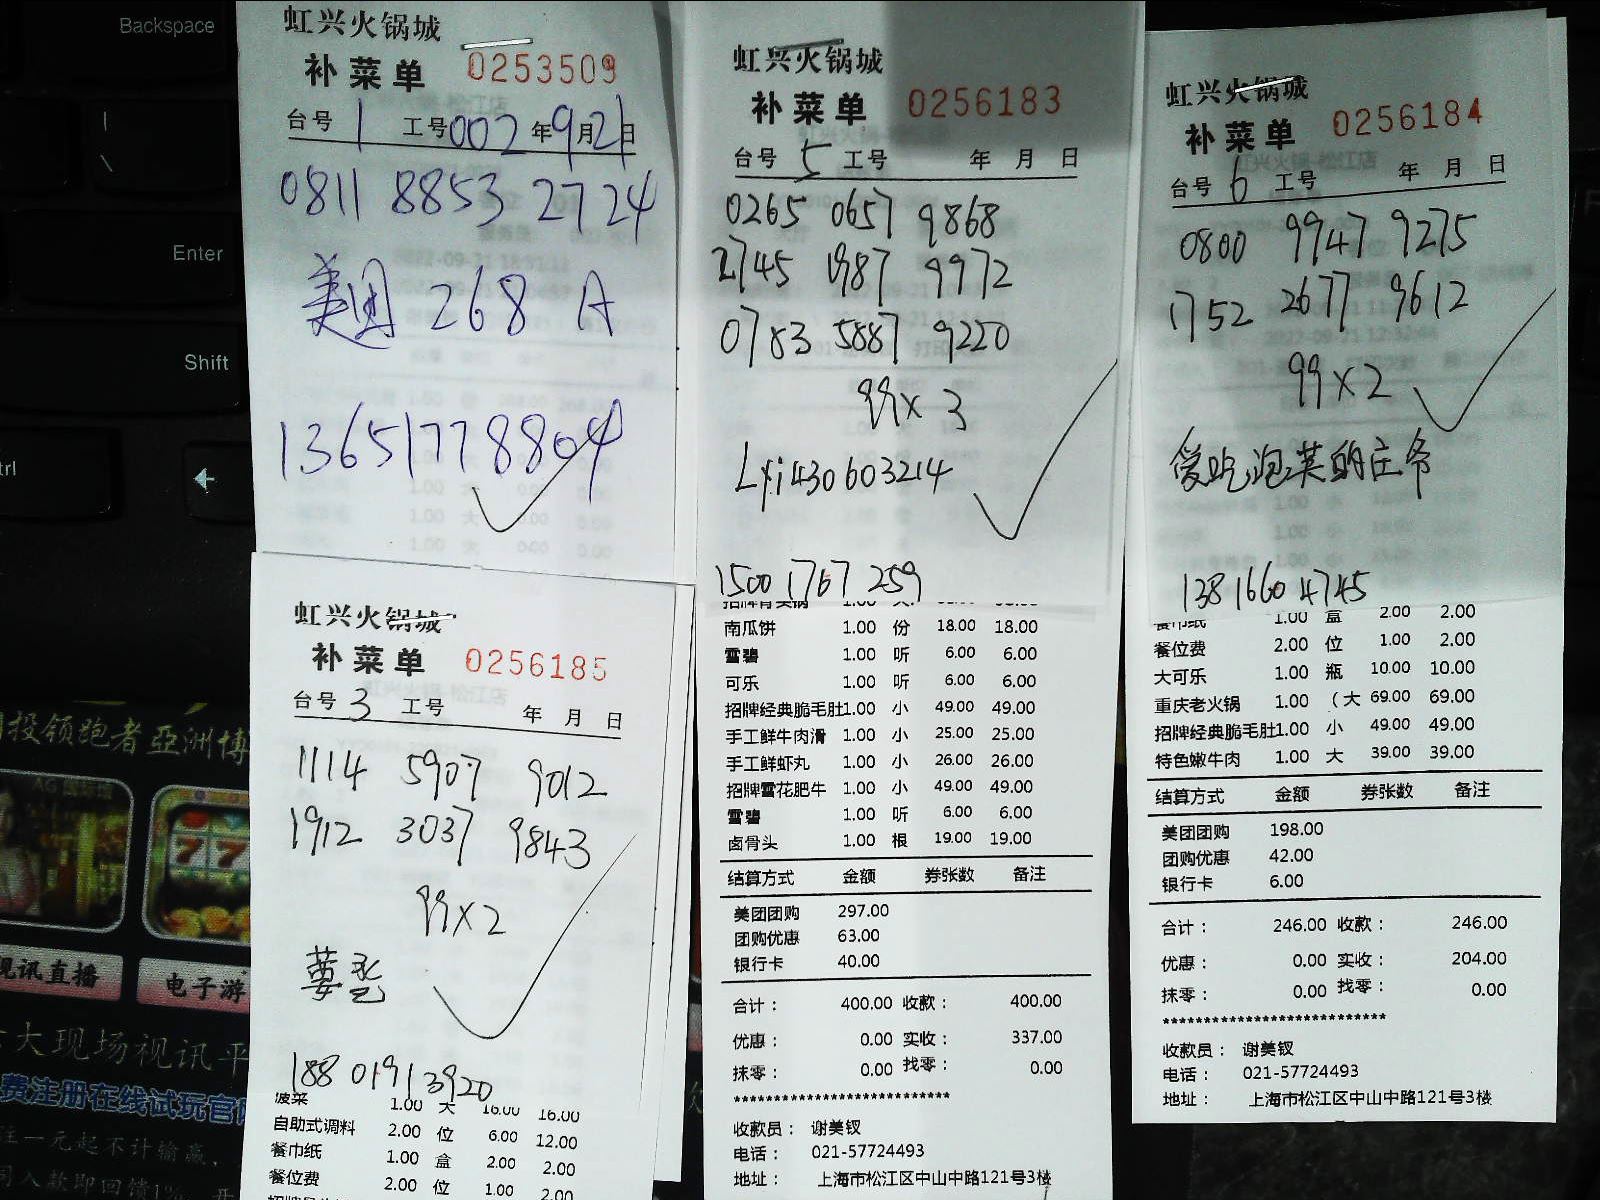 虹兴火锅城
补菜单 0253509
台号 1 工号 002 年 9月 21日
0811 8853 2724
美团 268 A
13651778804
虹兴火锅城
补菜单 0256185
台号 3 工号 年 月 日
1114 5907 9012
1912 3037 9843
99x2
188 0191 3920
菠菜 1.00 大 16.00 16.00
自助式调料 2.00 位 6.00 12.00
餐巾纸 1.00 盒 2.00 2.00
餐位费 2.00 位 1.00 2.00
虹兴火锅城
补菜单 0256183
台号 5 工号 年 月 日
0265 0657 9868
2745 1987 9972
0783 5887 9220
99x3
Lyi430603214
1500 1767 259
南瓜饼 1.00 份 18.00 18.00
雪碧 1.00 听 6.00 6.00
可乐 1.00 听 6.00 6.00
招牌经典脆毛肚1.00 小 49.00 49.00
手工鲜牛肉滑 1.00 小 25.00 25.00
手工鲜虾丸 1.00 小 26.00 26.00
招牌雪花肥牛 1.00 小 49.00 49.00
雪碧 1.00 听 6.00 6.00
卤骨头 1.00 根 19.00 19.00
结算方式 金额 券张数 备注
美团团购 297.00
团购优惠 63.00
银行卡 40.00
合计： 400.00 收款： 400.00
优惠： 0.00 实收： 337.00
抹零： 0.00 找零： 0.00
***************************
收款员： 谢美钗
电话： 021-57724493
地址： 上海市松江区中山中路121号3楼
虹兴火锅城
补菜单 0256184
台号 6 工号 年 月 日
0800 9947 9275
1752 2677 9612
99x2
爱吃泡菜的庄爷
138 1660 4745
餐巾纸 1.00 盒 2.00 2.00
餐位费 2.00 位 1.00 2.00
大可乐 1.00 瓶 10.00 10.00
重庆老火锅 1.00 （大 69.00 69.00
招牌经典脆毛肚1.00 小 49.00 49.00
特色嫩牛肉 1.00 大 39.00 39.00
结算方式 金额 券张数 备注
美团团购 198.00
团购优惠 42.00
银行卡 6.00
合计： 246.00 收款： 246.00
优惠： 0.00 实收： 204.00
抹零： 0.00 找零： 0.00
***************************
收款员： 谢美钗
电话： 021-57724493
地址： 上海市松江区中山中路121号3楼
Backspace
Enter
Shift
投领跑者亞洲博
视讯直播
电子游
大现场视讯平
费注册在线试玩官
注一元起不计输赢，